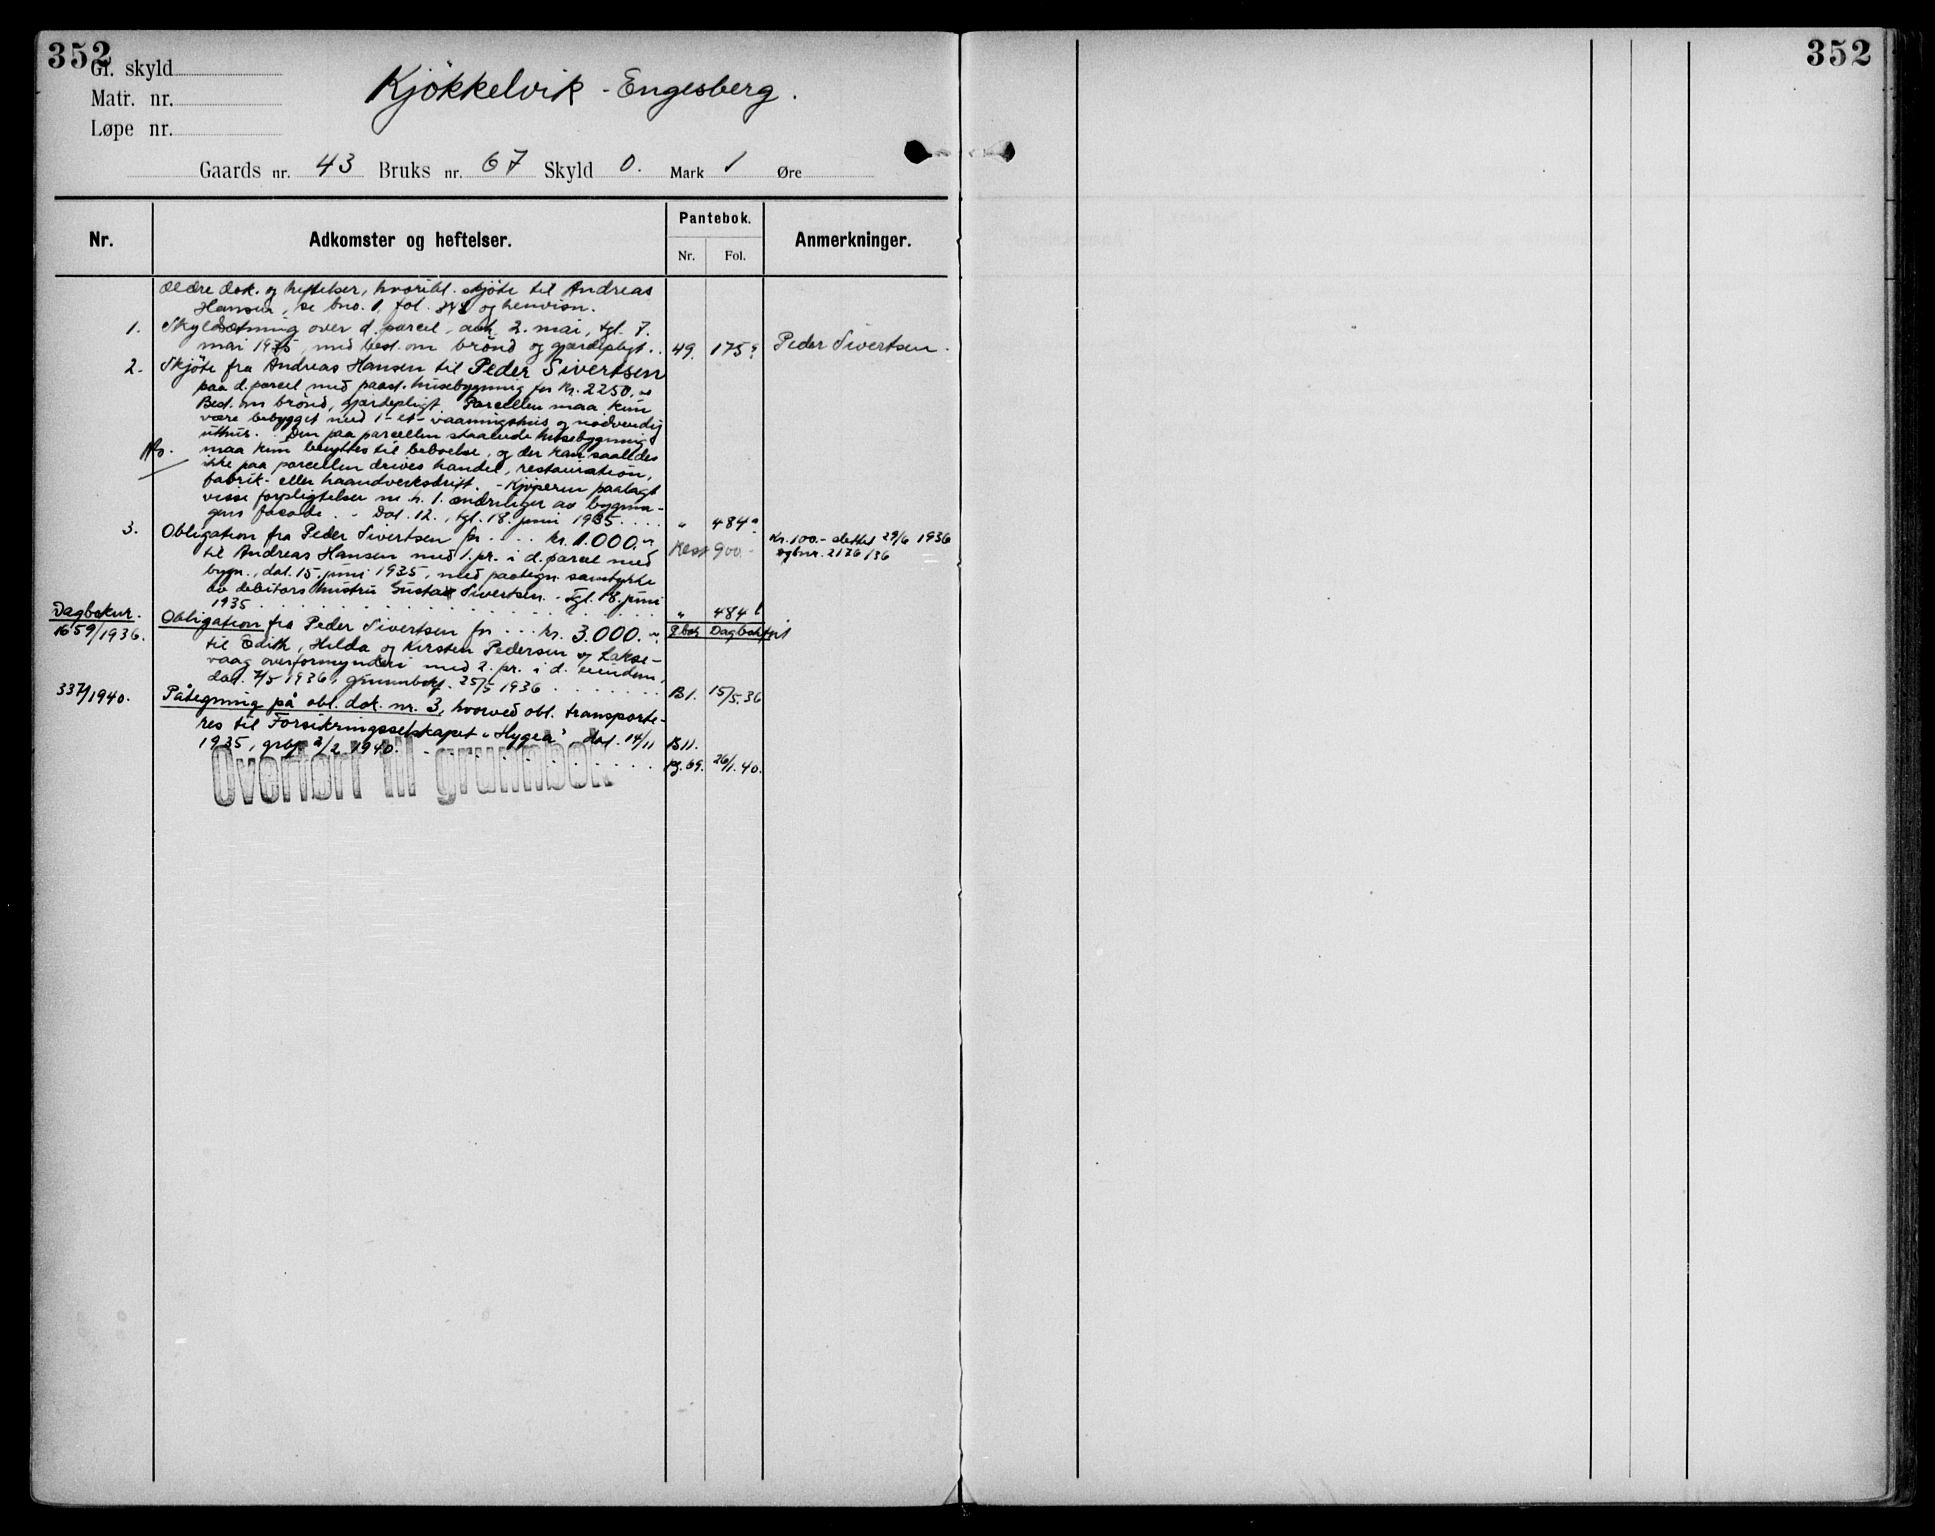 352
352
Gl. skyld
Matr. nr.
Løpe nr.
Kjökkelvik - Engesberg.
Gaards nr. 43 Bruks nr. 67 Skyld 0. Mark 1 Øre
Nr. Adkomster og heftelser. Pantebok. Anmerkninger.
Nr. Fol.
Ældre dok. og heftelser, hvoribl. skjöte til Andreas
Hansen, se bno. 1, fol. og henvisn.
1. Skyldsetning over d. parcel, avh. 2. mai, tgl. 7.
mai 1935, med best. om brönd og gjærdepligt. . 49. 175 Peder Sivertsen.
2. Skjöte fra Andreas Hansen til Peder Sivertsen
paa d. parcel med paast. husebygning for Kr. 2250,
Best. om brönd, gjærdepligt. Parcellen maa kun
være bebygget med 1 - et - vaaningshus og nödvendig
uthus. Den paa parcellen staaende husebygning
maa kun benyttes til beboelse, og der kan saaledes
ikke paa parcellen drives handel, restauration,
fabrik- eller haandverksdrift. - Kjöperen paalagt
visse forpligtelser m. h. t. ændringer av bygnin-
gens facade. - Dat. 12., tgl. 18. juni 1935 . . . . " 484 a
3. Obligation fra Peder Sivertsen for . . . . kr. 1.000.- Rest 900.- Kr. 100.- slettet 29/6 1936
til Andreas Hansen med 1. pr. i d. parcel med dgbnr. 2126/36
bygn., dat. 15. juni 1935, med paategn. samtykke
av debitors hustru Gusta Sivertsen. - Tgl. 18. juni
1935 . . . . . . . . . . " 484 b
Dagboknr.
1659/1936. Obligation fra Peder Sivertsen for . . . kr. 3.000.- P.bok Dagbokført
til Edith, Hilda og Kirsten Pedersen v/ Lakse-
vaag overformynderi med 2. pr. i d. eiendom,
dat. 7/5 1936, grunnbokf. 25/5 1936 . . . . . . . B1. 15/5.36
337/1940. Påtegning på obl. dok. nr. 3, hvorved obl. transporte-
res til Forsikringsselskapet "Hygea" dat. 14/11
1935, grbf. 2/2 1940. B11.
. . . . . . pg. 69. 26/1.40.
Overført til grunnbok